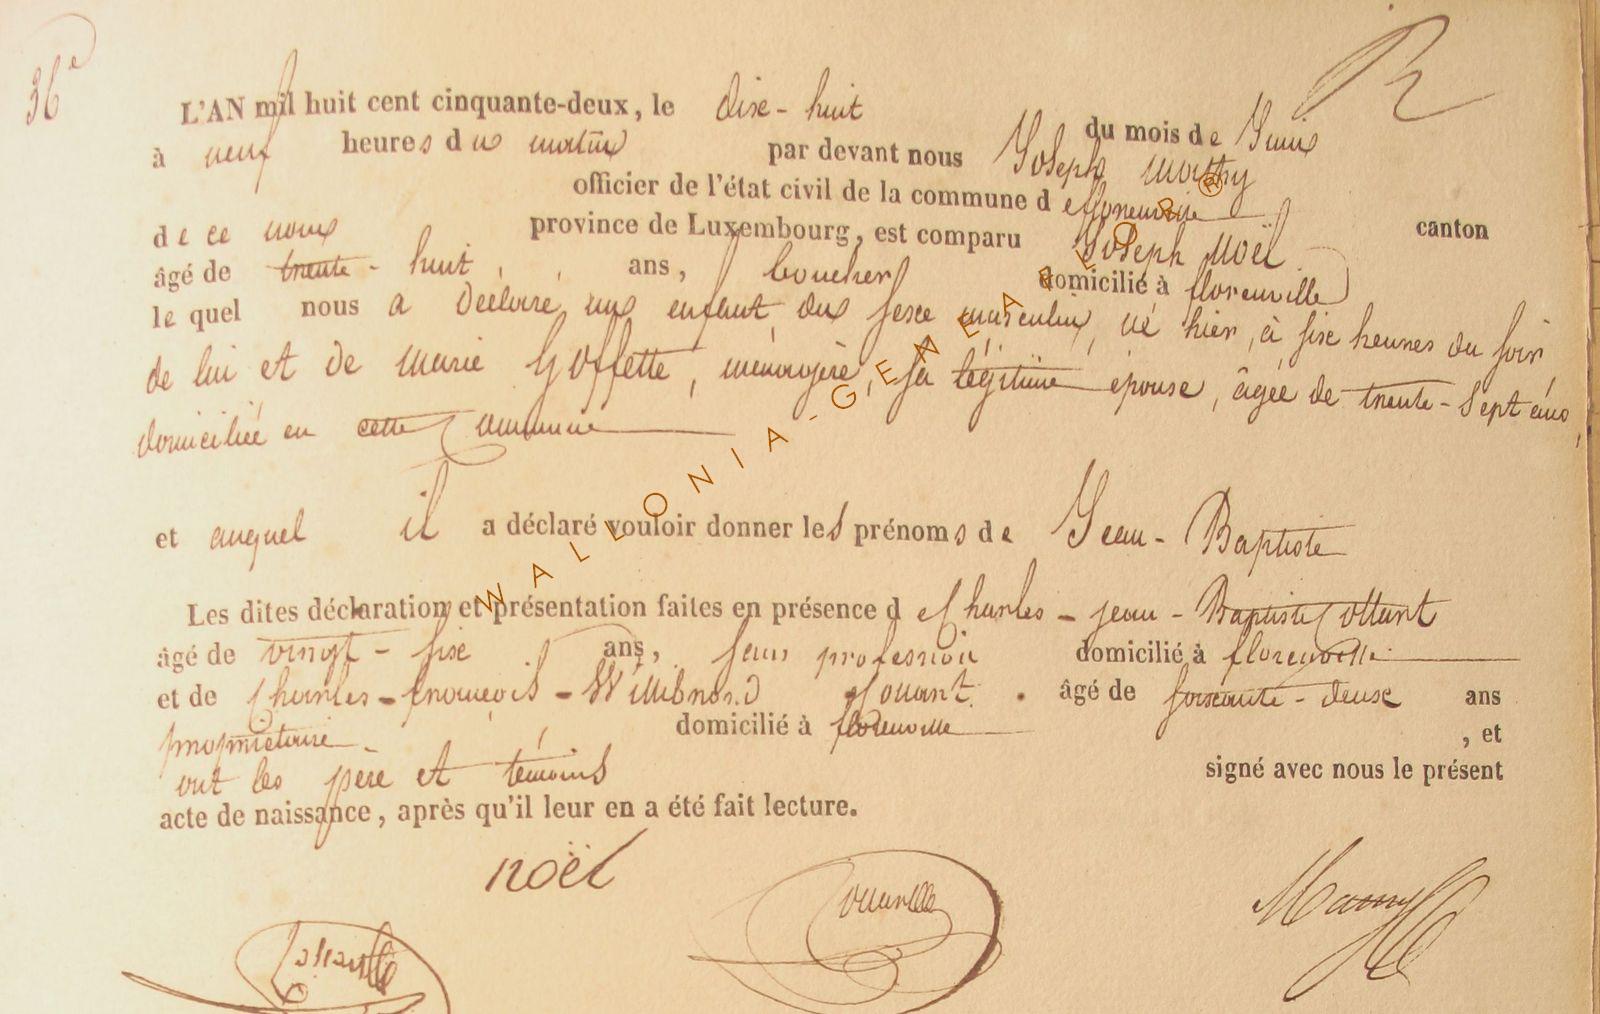 36e
L'AN mil huit cent cinquante-deux, le dix-huit du mois de Juin
à neuf heures du matin par devant nous Joseph Mathy
officier de l'état civil de la commune de florenville canton
de ce nom province de Luxembourg, est comparu Joseph Noël
âgé de trente-huit, ans, boucher domicilié à florenville
lequel nous a déclaré un enfant du sexe masculin, né hier, à six heures du soir
de lui et de Marie Goffette, ménagère, sa légitime épouse, âgée de trente-sept ans,
domiciliée en cette Commune
et auquel il a déclaré vouloir donner les prénoms de Jean-Baptiste
Les dites déclaration et présentation faites en présence de Charles-jean-Baptiste Collart
âgé de vingt-six ans, sans profession domicilié à florenville
et de Charles-françois-Willibrord âgé de soixante-deux ans
propriétaire domicilié à florenville, et
ont les père et témoins signé avec nous le présent
acte de naissance, après qu'il leur en a été fait lecture.
Noël
WALLONIA-GENEALOR®